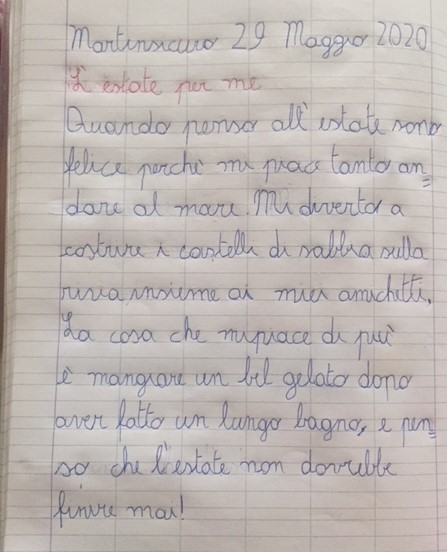 Martinsicuro 29 Maggio 2020
L'estate per me
Quando penso all'estate sono
felice perchè mi piace tanto an=
dare al mare. Mi diverto a
costruire i castelli di sabbia sulla
riva insieme ai miei amichetti.
La cosa che mi piace di più
è mangiare un bel gelato dopo
aver fatto un lungo bagno, e pen=
so che l'estate non dovrebbe
finire mai!